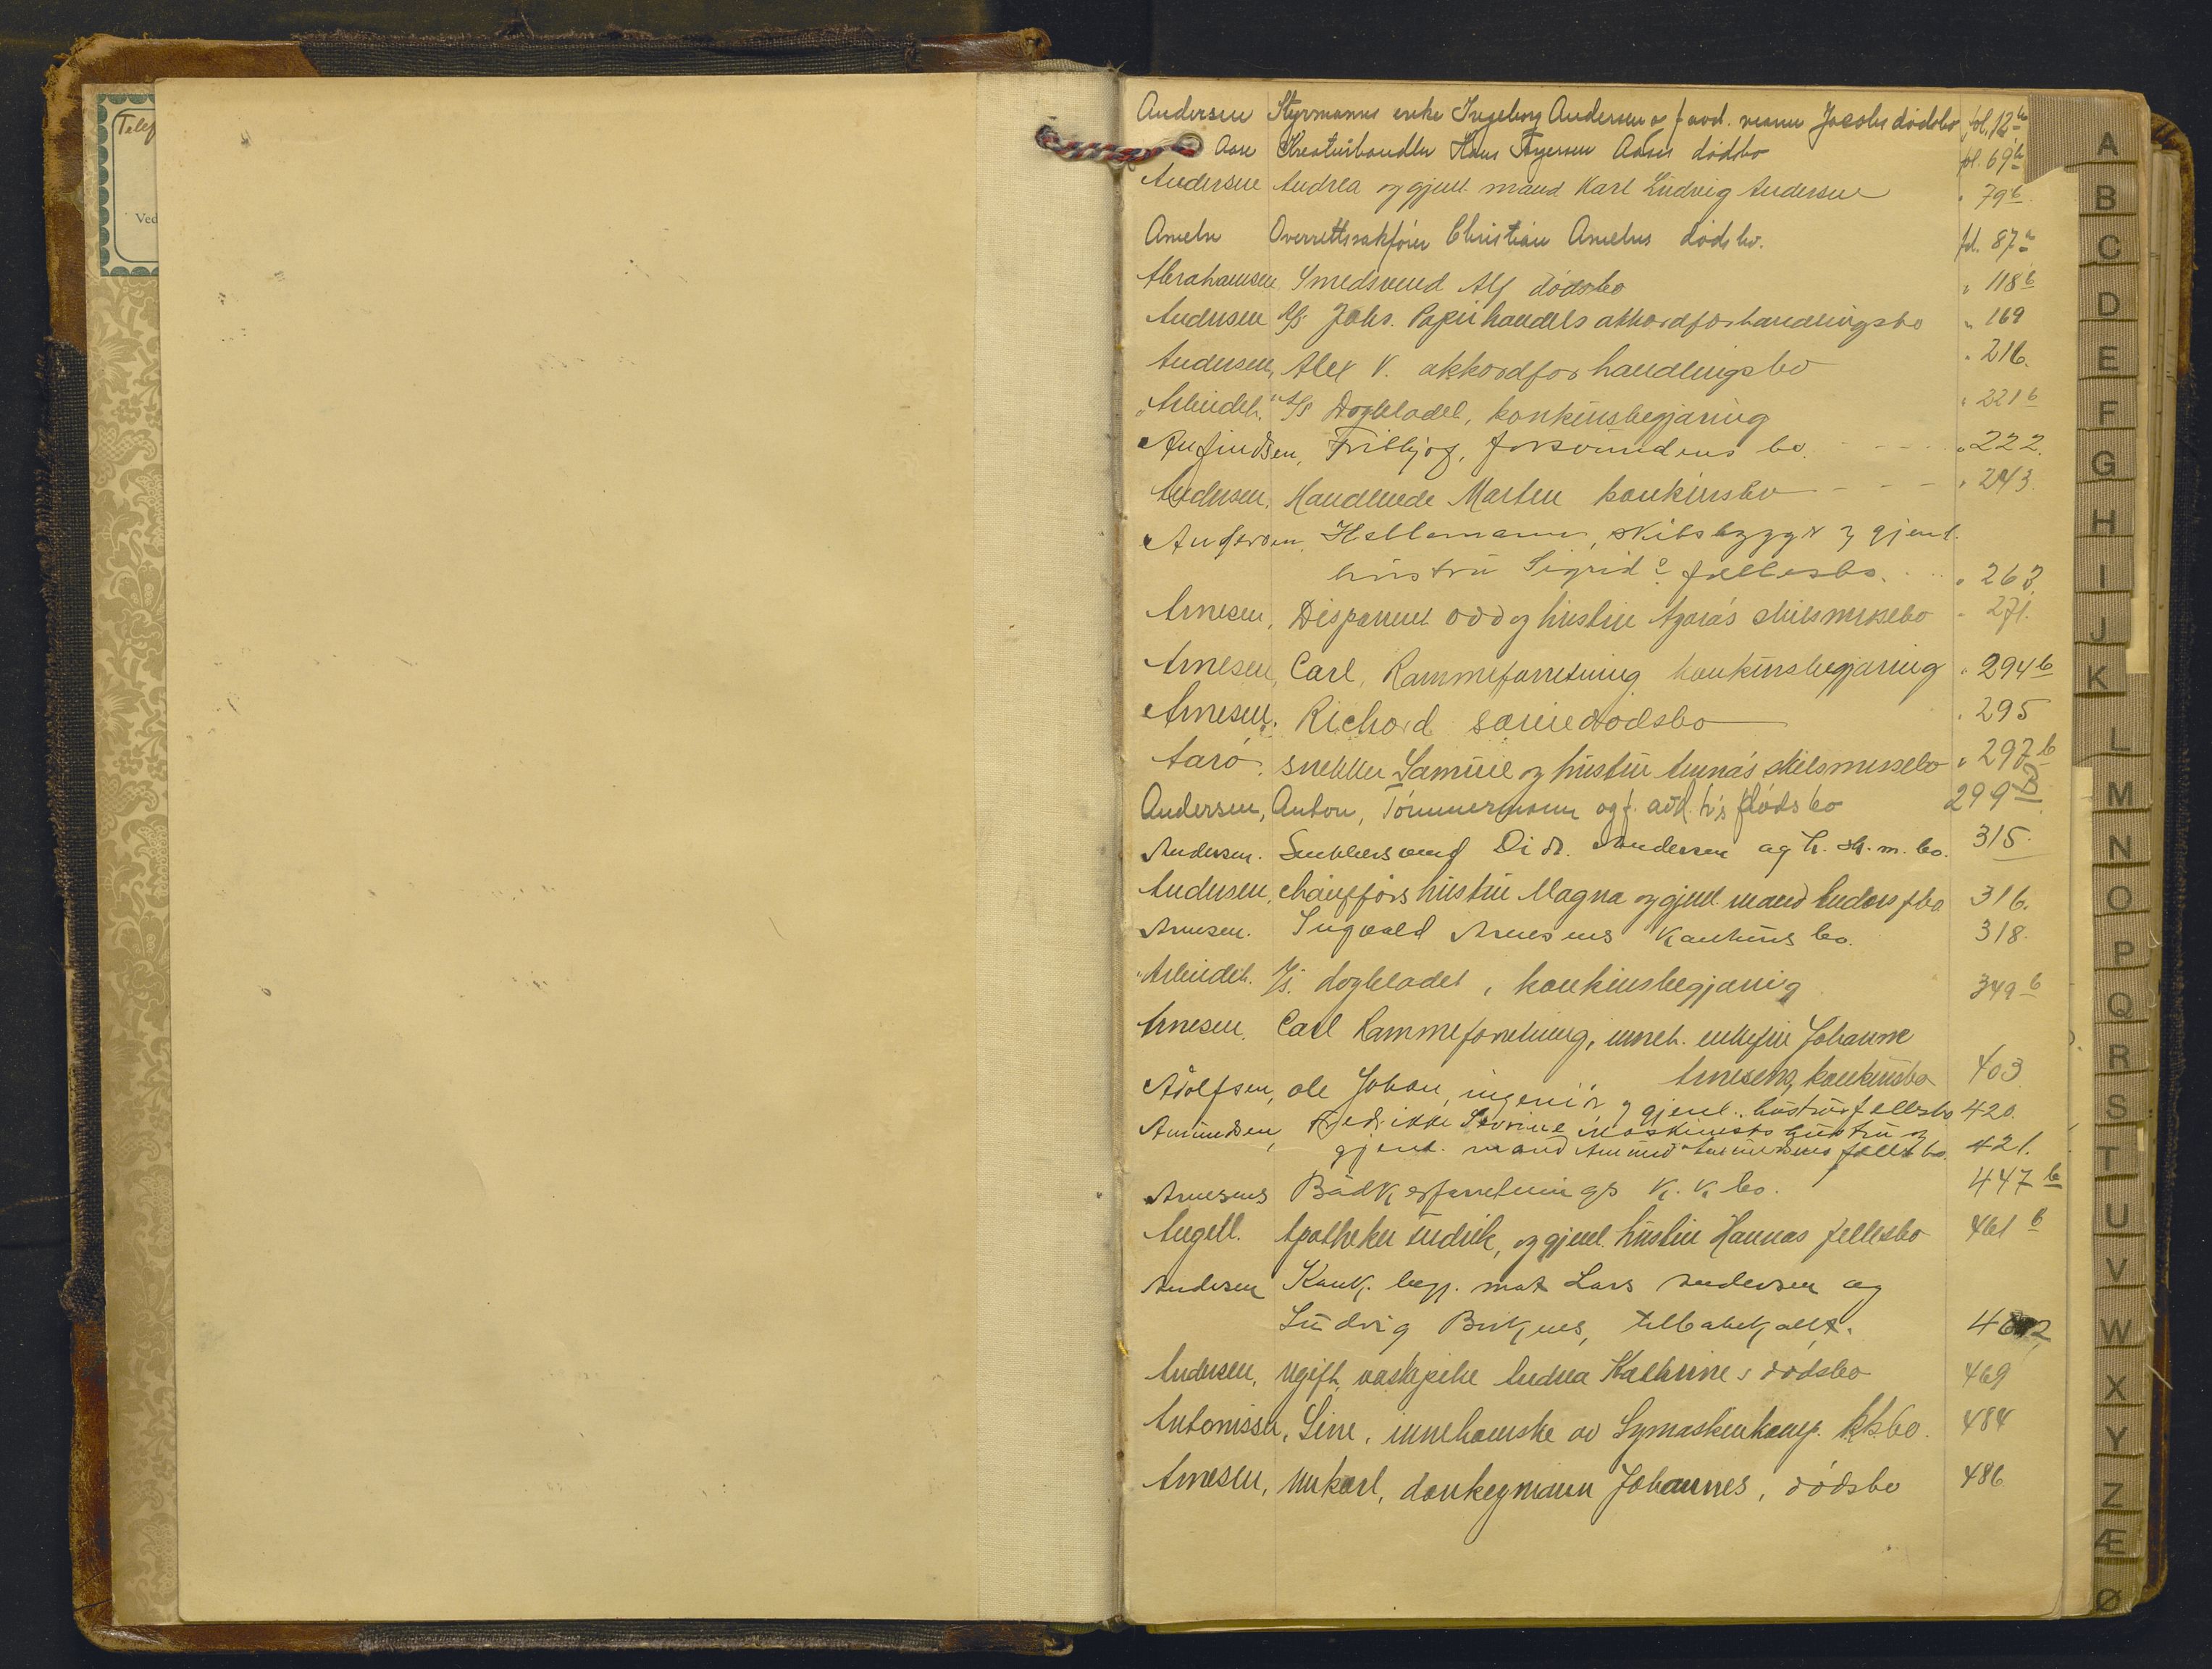 Telef
Ved
Andersen Styrmanns enke Ingeborg Andersen og f. avd. mann Jacobs dødsbo fol. 12 b
Aase Kreaturhandler Hans Aases dødsbo fol. 69 b
Andersen Andrea og gjenl. mand Karl Ludvig Andersen " 79 b.
Ameln Overrettssakfører Christian Amelns dødsbo. fol. 87 b
Abrahamsen Smedsvend Alf dødsbo " 118 b
Andersen A/S Johs. Papirhandels akkordforhandlingsbo " 169
Andersen, Alex V. akkordforhandlingsbo " 216.
"Arbeidet" A/S Dagbladet, konkursbegjæring " 221 b
Anfindsen, Fritbjof, forsvundens bo. - - - " 222.
Andersen, Handlende Marten konkursbo - - - " 243.
Hellemann, skibsbygger og gjenl.
hustru Sigrids fellesbo. " 263
Arnesen, Disponent Odd og hustru Agora's skilsmissebo " 271.
Arnesen, Carl, Rammeforretning konkursbegjæring " 294 b
Arnesen, Richard særiedødsbo " 295
Aarø, snekker Samuel og hustru Anna's skilsmissebo " 297 b
Andersen, Anton, Tømmermann og f. avd. h's dødsbo 299 B
Andersen. Snekkersvend Didr. Andersen og h. sk. m. bo. 315.
Andersen, chaufførs hustru Magna og gjenl. mand Anders fbo 316.
Arnesen. Ingvald Arnesens Konkurs bo. 318.
"Arbeidet. A/S. dagbladet, konkursbegjæring 349 b
Arnesen, Carl Rammeforretning, inneh. enkefru Johanne
Arnesens, konkursbo 403
Adolfsen, Ole Johan, ingeniør og gjenl. hustrus fellesbo 420.
Amundsen, Fredrikke Severine maskinists hustru og
gjenl. mand Amund Amundsens fellesbo. 421.
Arnesens Bødkerforretnings K.K. bo. 447 b
Angell. Apotheker Endrik, og gjenl. hustru Hannas fellesbo 461 b
Andersen Konk. begj. mot Lars Andersen og
Ludvig Birknes, tilbakekalt.
Andersen, ugift vaskepike Andrea Kathrine s dødsbo 469
Antonissen, Sine, innehaverske av Symaskinkomp. kksbo. 484
Arnesen, unkarl, donkeymann Johannes, dødsbo 486
A
B
C
D
E
F
G
H
I
J
K
L
M
N
O
P
Q
R
S
T
U
V
W
X
Y
Z
Æ
Ø